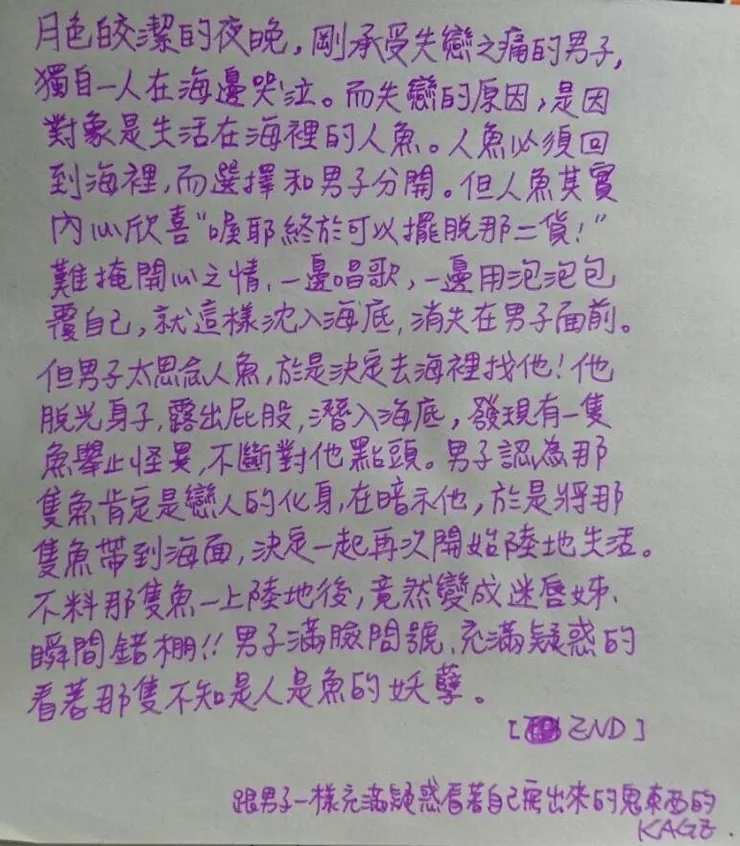 月色皎潔的夜晚，剛承受失戀之痛的男子，
獨自一人在海邊哭泣。而失戀的原因，是因
對象是生活在海裡的人魚。人魚必須回
到海裡，而選擇和男子分開。但人魚其實
內心欣喜"喔耶終於可以擺脫那二貨！"
難掩開心之情，一邊唱歌，一邊用泡泡包
覆自己，就這樣沈入海底，消失在男子面前。
但男子太思念人魚，於是決定去海裡找他！他
脫光身子，露出屁股，潛入海底，發現有一隻
魚舉止怪異，不斷對他點頭。男子認為那
隻魚肯定是戀人的化身，在暗示他，於是將那
隻魚帶到海面，決定一起再次開始陸地生活。
不料那隻魚一上陸地後，竟然變成迷唇姊、
瞬間錯棚！！男子滿臉問號、充滿疑惑的
看著那隻不知是人是魚的妖孽。
[END]
跟男子一樣充滿疑惑看著自己寫出來的鬼東西的
KAGE.